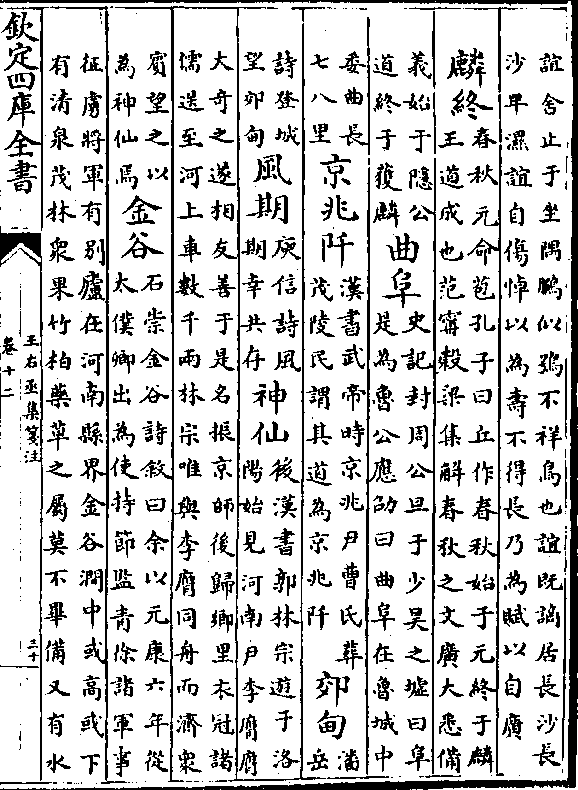 誼舍止于坐隅鵩似鴞不祥鳥也誼既謫居長沙長
沙卑濕誼自傷悼以為壽不得長乃為賦以自廣
麟終 春秋元命苞孔子曰丘作春秋始于元終于麟
王道成也范寗穀梁集解春秋之文廣大悉備
義始于隱公
道終于獲麟
曲阜 史記封周公旦于少昊之墟曰阜
是為魯公應劭曰曲阜在魯城中
委曲長
七八里
京兆阡 漢書武帝時京兆尹曹氏葬
茂陵民謂其道為京兆阡
郊甸 潘
岳
詩登城
望郊甸
風期 庾信詩風
期幸共存
神仙 後漢書郭林宗遊于洛
陽始見河南尹李膺膺
大奇之遂相友善于是名振京師後歸鄉里衣冠諸
儒送至河上車數千兩林宗唯與李膺同舟而濟衆
賓望之以
為神仙焉
金谷 石崇金谷詩敘曰余以元康六年從
太僕卿出為使持節監青徐諸軍事
征虜將軍有别廬在河南縣界金谷澗中或高或下
有清泉茂林衆果竹柏藥草之屬莫不畢備又有水
欽定四庫全書
王右丞集箋注
卷十二
三十